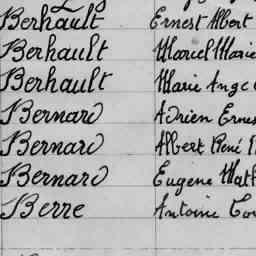 Berhault Ernest Albert
Berhault Marcel Marie
Berhault Marie Ange
Bernard Adrien Ernes
Bernard Albert René
Bernard Eugene Math
Berre Antoine